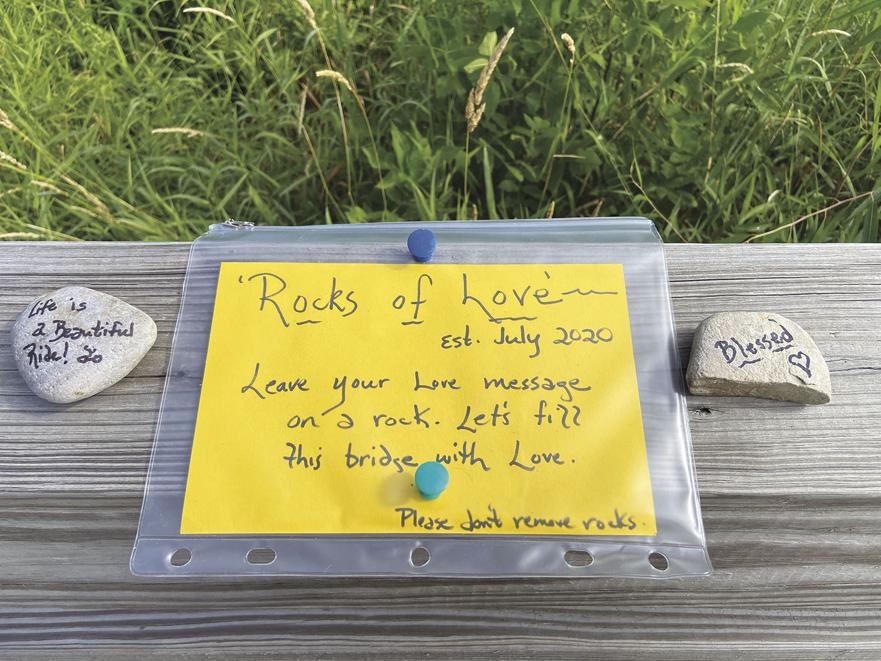 'Rocks of Love'
est. July 2020
Leave your Love message
on a rock. Let's fill
this bridge with Love.
Please don't remove rocks.
Life is
a Beautiful
Ride!
Blessed